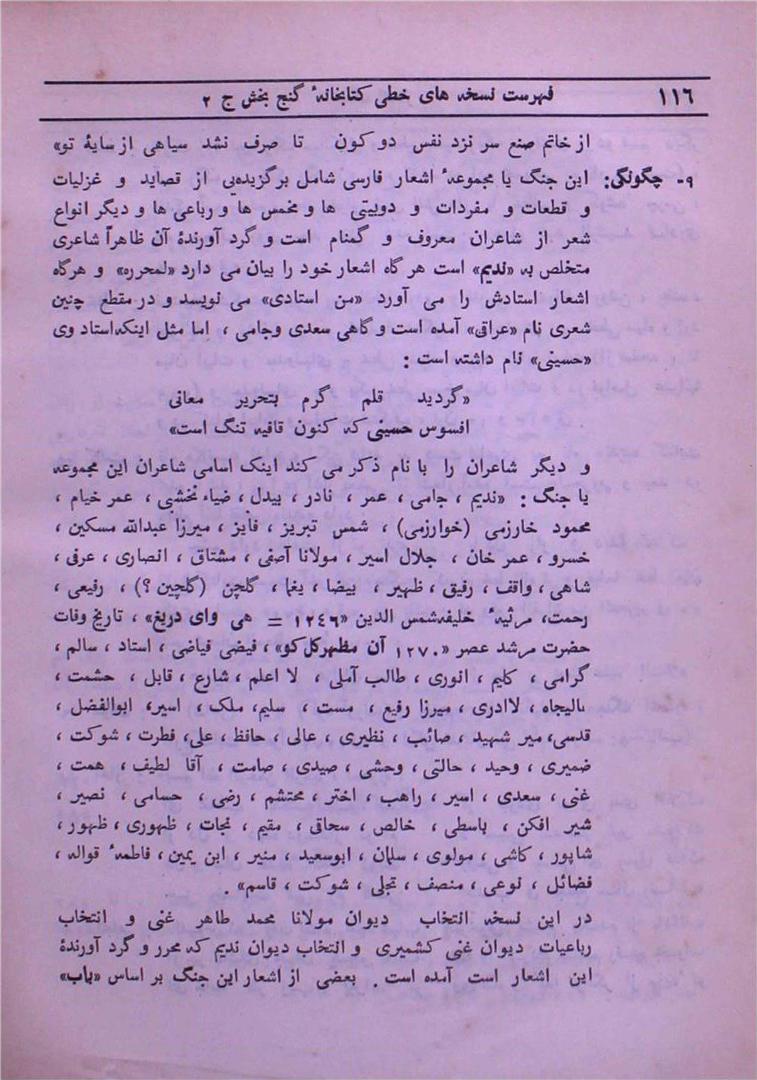 ۱۱٦ فهرست نسخه های خطی کتابخانهٔ گنج بخش ج ۲
از خاتم صنع سر نزد نفس دو کون تا صرف نشد سیاهی از سایهٔ تو»
۹- چگونگی: این جنگ یا مجموعهٔ اشعار فارسی شامل برگزیده‌یی از قصاید و غزلیات
و قطعات و مفردات و دوبیتی ها و مخمس ها و رباعی ها و دیگر انواع
شعر از شاعران معروف و گمنام است و گرد آورندهٔ آن ظاهراً شاعری
متخلص به «ندیم» است هر گاه اشعار خود را بیان می دارد «لمحرره» و هرگاه
اشعار استادش را می آورد «من استادی» می نویسد و در مقطع چنین
شعری نام «عراقی» آمده است و گاهی سعدی وجامی ، اما مثل اینکه‌استاد وی
«حسینی» نام داشته است :
«گردید قلم گرم بتحریر معانی
افسوس حسینی که کنون قافیه تنگ است»
و دیگر شاعران را با نام ذکر می کند اینک اسامی شاعران این مجموعه
یا جنگ : «ندیم ، جامی ، عمر ، نادر ، بیدل ، ضیاء نخشبی ، عمر خیام ،
محمود خارزمی (خوارزمی) ، شمس تبریز ، فایز ، میرزا عبدالله مسکین ،
خسرو ، عمر خان ، جلال اسیر ، مولانا آصفی ، مشتاق ، انصاری ، عرفی ،
شاهی ، واقف ، رفیق ، ظهیر ، بیضا ، یغما ، گلچن (گلچین ؟) ، رفیعی ،
رحمت، مرثیه خلیفه‌شمس الدین «۱۲٤٦ = هی وای دریغ» ، تاریخ وفات
حضرت مرشد عصر «۱۲۷۰ آن مظهر کل کو» ، فیضی فیاضی ، استاد ، سالم ،
گرامی ، کلیم ، انوری ، طالب آملی ، لا اعلم ، شارع ، قابل ، حشمت ،
عالیجاه ، لاادری ، میرزا رفیع ، مست ، سلیم، ملک ، اسیر، ابوالفضل ،
قدسی، میر شهید ، صائب ، نظیری ، عالی ، حافظ ، علی، فطرت ، شوکت ،
ضمیری ، وحید ، حالتی ، وحشی ، صیدی ، صامت ، آقا لطیف ، همت ،
غنی ، سعدی ، اسیر ، راهب ، اختر ، محتشم ، رضی ، حسامی ، نصیر ،
شیر افکن ، باسطی ، خالص ، سحاقی ، مقیم ، نجات ، ظهوری ، ظهور ،
شاپور ، کاشی ، مولوی ، سلمان ، ابوسعید ، منیر ، ابن یمین ، فاطمهٔ قواله ،
فضائل ، نوعی ، منصف ، تجلی ، شوکت ، قاسم» .
در این نسخه انتخاب دیوان مولانا محمد طاهر غنی و انتخاب
رباعیات دیوان غنی کشمیری و انتخاب دیوان ندیم که محرر و گرد آورندهٔ
این اشعار است آمده است . بعضی از اشعار این جنگ بر اساس «باب»